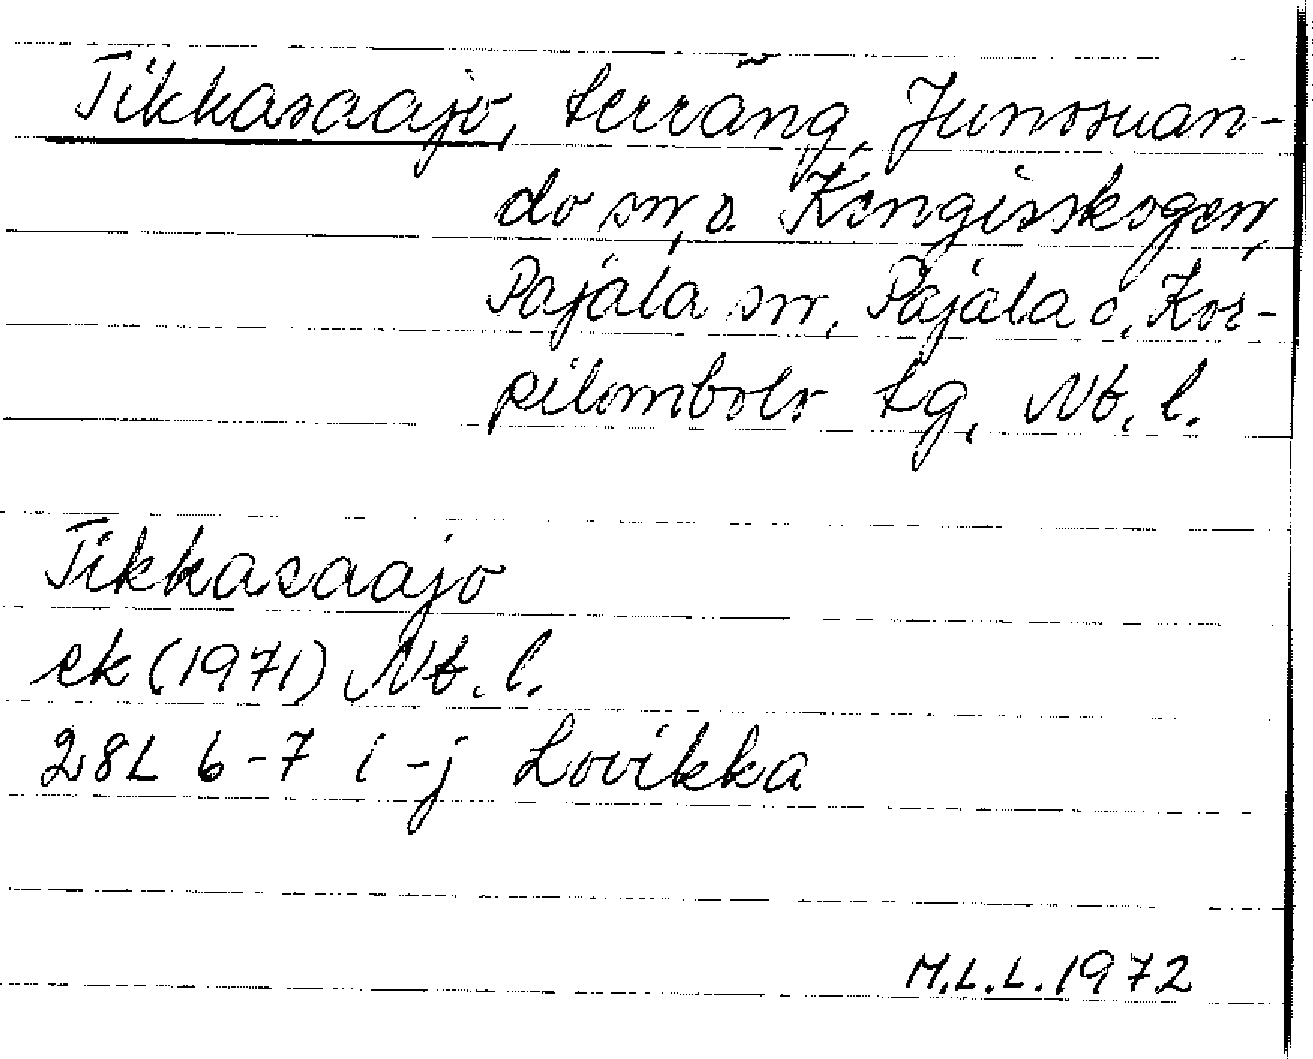 Tikkasaajo, terräng, Junosuan-
do sn, o. Kengisskogen,
Pajala sn, Pajala o. Kor-
pilombolo tg, Nb. l.
Tikkasaajo
ek (1971) Nb. l.
28L 6-7 i-j Lovikka
M.L.L. 1972